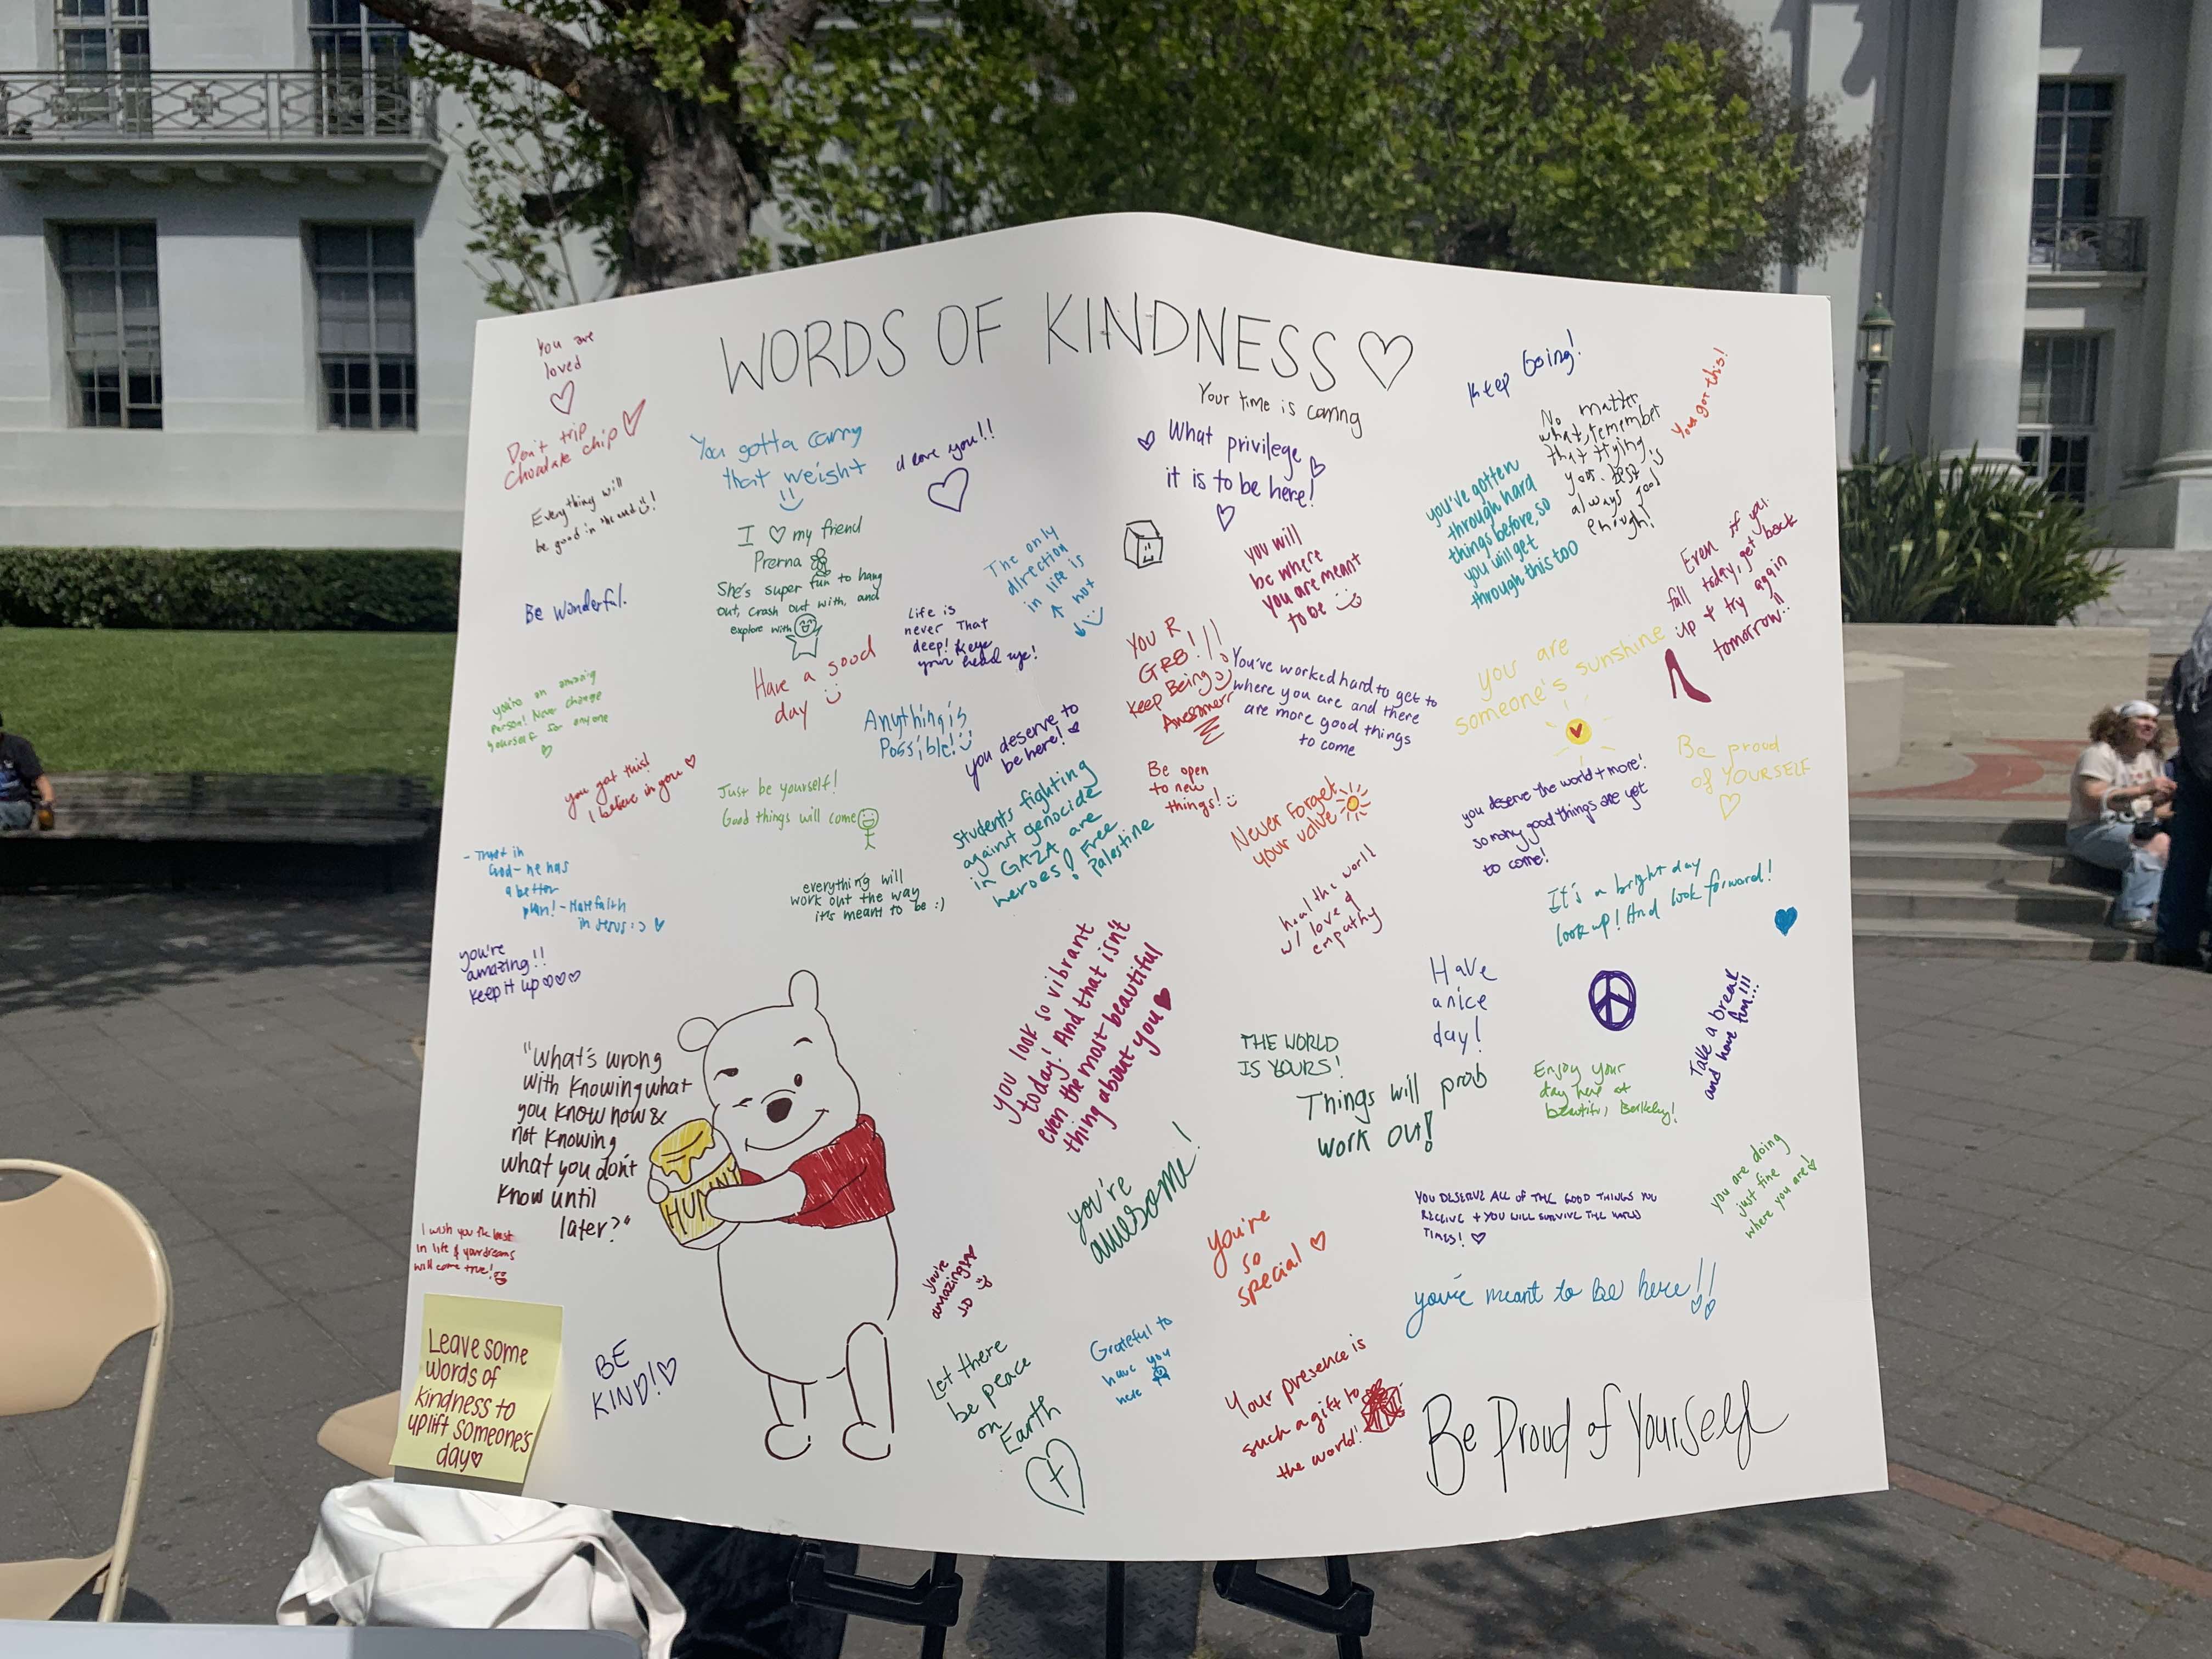 WORDS OF KINDNESS
You are
loved
Don't trip
Chocolate chip
Everything will
be good in the end :)!
Be Wonderful.
you're an amazing
person! Never change
yourself for anyone
you got this!
I believe in you
- Trust in
God - he has
a better
plan! - Have faith
in Jesus :)
you're
amazing!!
Keep it up
You gotta carry
that weight
I love you!!
I ♡ my friend
Prerna
She's super fun to hang
out, crash out with, and
explore with
Have a good
day
Life is
never That
deep! Keep
your head up!
The only
direction
in life is
↑ not
↓
Anything is
Possible!
you deserve to
be here!
Just be yourself!
Good things will come
everything will
work out the way
it's meant to be :)
Students fighting
against genocide
in GAZA are
heroes! Free
Palestine
Your time is coming
What privilege
it is to be here!
you will
be where
you are meant
to be
YOU R
GR8!!!
Keep Being
Awesome
You've worked hard to get to
where you are and there
are more good things
to come
Be open
to new
things!
Never Forget
your value
heal the world
w/ love &
empathy
Keep Going!
You got this!
No matter
what, remember
that trying
your best is
always good
enough!
you've gotten
through hard
things before, so
you will get
through this too
Even if you
fall today, get back
up & try again
tomorrow!!
you are
someone's sunshine
Be proud
of YOURSELF
you deserve the world + more!
so many good things are yet
to come!
It's a bright day
look up! And look forward!
Have
a nice
day!
Take a break
and have fun!!!
You look so vibrant
today! And that isn't
even the most beautiful
thing about you
THE WORLD
IS YOURS!
Things will prob
work out!
Enjoy your
day here at
beautiful Berkeley!
you are doing
just fine
where you are!
"What's wrong
with knowing what
you know now &
not knowing
what you don't
know until
later?"
HUNNY
I wish you the best
in life & your dreams
will come true!
you're
awesome!
you're
so
special
you're
amazing
YOU DESERVE ALL OF THE GOOD THINGS YOU
RECEIVE + YOU WILL SURVIVE THE HARD
TIMES!
you're meant to be here!!
Leave some
words of
kindness to
uplift someone's
day
BE
KIND!
Let there
be peace
on
Earth
Grateful to
have you
here
Your presence is
such a gift to
the world!
Be Proud of Yourself